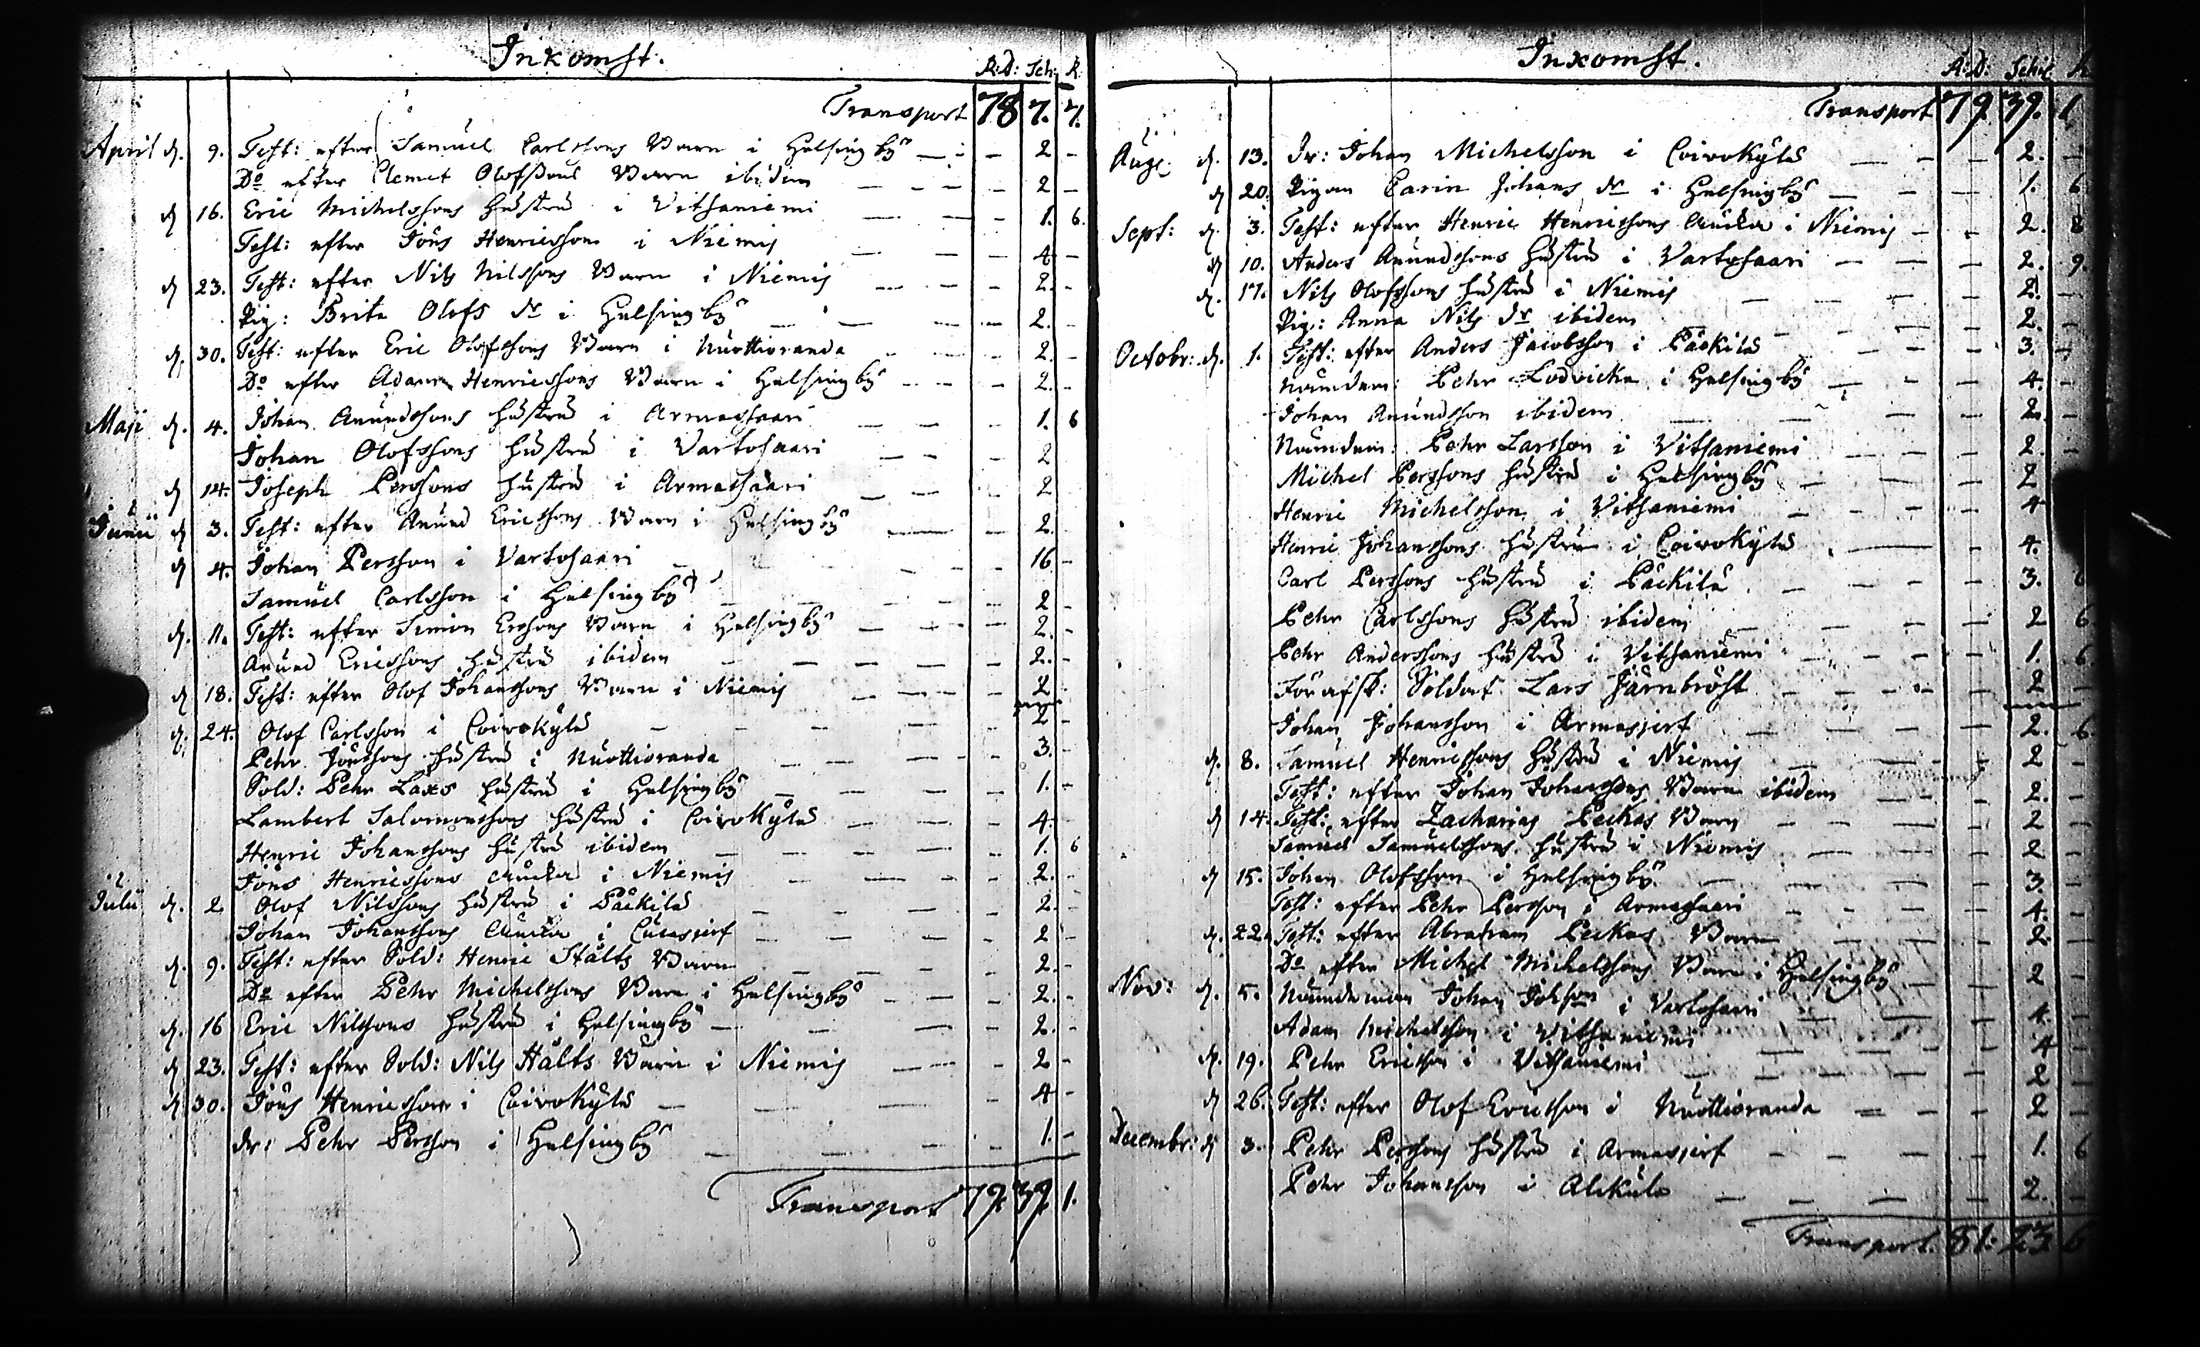 Inkomst.
R:D: Sch: R.
Transport 78 7. 7.
April d. 9. Test: efter Samuel Carlssons Barn i Helsingby — 2 –
Do efter Clemet Olofssons Barn ibidem — 2 –
d 16. Eric Michelssons Hustru i Vitsaniemi — 1. 6.
Test: efter Jöns Henricsson i Niemis — 4 –
d 23. Test: efter Nils Nilssons Barn i Niemis — 2. –
Pig: Brita Olofs dr i Helsingby — 2. –
d. 30. Test: efter Eric Olofssons Barn i Nuottioranda — 2. –
Do efter Adam Henricssons Barn i Helsingby — 2. –
Maji d. 4. Johan Anundssons Hustru i Armassaari — 1. 6
Johan Olofssons Hustru i Vartosaari — 2
d 14. Joseph Perssons Hustru i Armassaari — 2
Junii d 3. Test: efter Anund Ericssons Barn i Helsingby — 2.
d 4. Johan Persson i Vartosaari — 16 –
Samuel Carlsson i Helsingby — 2 –
d. 11. Test: efter Simon Ersons Barn i Helsingby — 2. –
Anund Ericssons Hustru ibidem — 2. –
d 18. Test: efter Olof Johanssons Barn i Niemis — 2
d. 24. Olof Carlsson i Coivokylä — 2 –
Pehr Jönssons Hustru i Nuottioranda — 3. –
Sold: Pehr Laxs Hustru i Helsingby — 1. –
Lambert Salomonssons Hustru i Coivokylä — 4. –
Henric Johanssons Hustru ibidem — 1. 6
Jöns Henricssons Äncka i Niemis — 2. –
Julii d. 2 Olof Nilssons Hustru i Päckilä — 2. –
Johan Johanssons Äncka i — 2 –
d. 9. Test: efter Sold: Henric Stålts Barn — 2. –
Do efter Pehr Michelssons Barn i Helsingby — 2. –
d. 16 Eric Nilssons Hustru i Helsingby — 2. –
d 23. Test: efter Sold: Nils Hålts Barn i Niemis — 2 –
d 30. Jöns Henricsson i Coivokylä — 4 –
dr: Pehr Persson i Helsingby — 1. –
Transport 79. 39. 1.
Inkomst.
R:D: Schil R
Transport 79. 39. 1
Aug: d. 13. Dr: Johan Michelsson i Coivokylä — 2. –
d 20. Pigan Carin Johans dr i Helsingby — 1. 6
Sept: d. 3. Test: efter Henric Henricssons Äncka i Niemis — 2. 8
d 10. Anders Anundssons Hustru i Vartosaari — 2. 9.
d. 17. Nils Olofssons Hustru i Niemis — 2. –
Pig: Anna Nils dr ibidem — 2. –
Octobr: d. 1. Test: efter Anders Jacobsson i Päckilä — 3. –
Nämdem: Pehr Lodvicka i Helsingby — 4. –
Johan Anundsson ibidem — 2. –
Nämdem: Pehr Larsson i Vitsaniemi — 2. –
Michel Perssons Hustru i Helsingby — 2
Henric Michelsson i Vitsaniemi — 4
Henric Johanssons Hustru i Coivokylä — 4.
Carl Perssons Hustru i Päckilä — 3. 6
Pehr Carlssons Hustru ibidem — 2 6
Pehr Anderssons Hustru i Vitsaniemi — 1. 6
För afsk: Soldat Lars Järnbröst — 2 –
Johan Johansson i Armasjerf — 2. 6
d. 8. Samuel Henricssons Hustru i Niemis — 2 –
Test: efter Johan Johanssons Barn ibidem — 2. –
d 14. Test: efter Zacharias Peckas Barn — 2 –
Samuel Samuelssons Hustru i Niemis — 2 –
d 15. Johan Olofsson i Helsingby — 3. –
Test: efter Pehr Persson i Armassaari — 4. –
d. 22. Test: efter Abraham Peckas Barn — 2. –
Do efter Michel Michelssons Barn i Helsingby — 2 –
Nov: d. 5. Nämndeman Johan i Vartosaari — 4. –
Adam Michelsson i Vitsaniemi — 4 –
d. 19. Pehr Ericsson i Vitsaniemi — 2 –
d 26. Test: efter Olof Ericsson i Nuottioranda — 2 –
Decembr: d 3. Pehr Perssons Hustru i Armasjerf — 1. 6
Pehr Johansson i Alkula — 2. –
Transport. 81. 23. 6